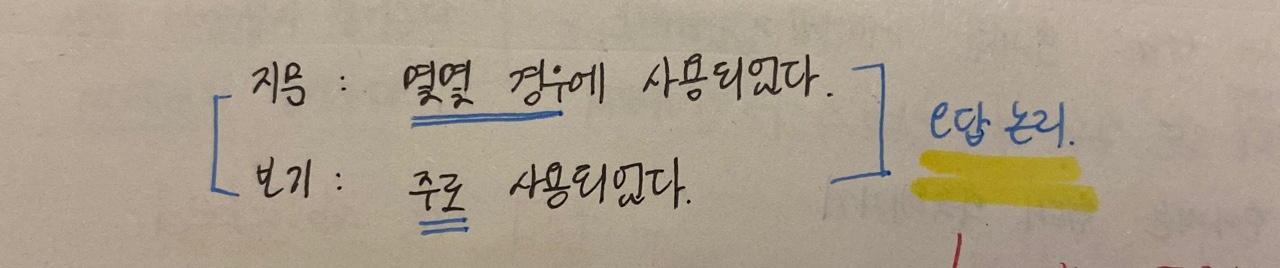 지문 : 몇몇 경우에 사용되었다.
보기 : 주로 사용되었다.
오답 논리.